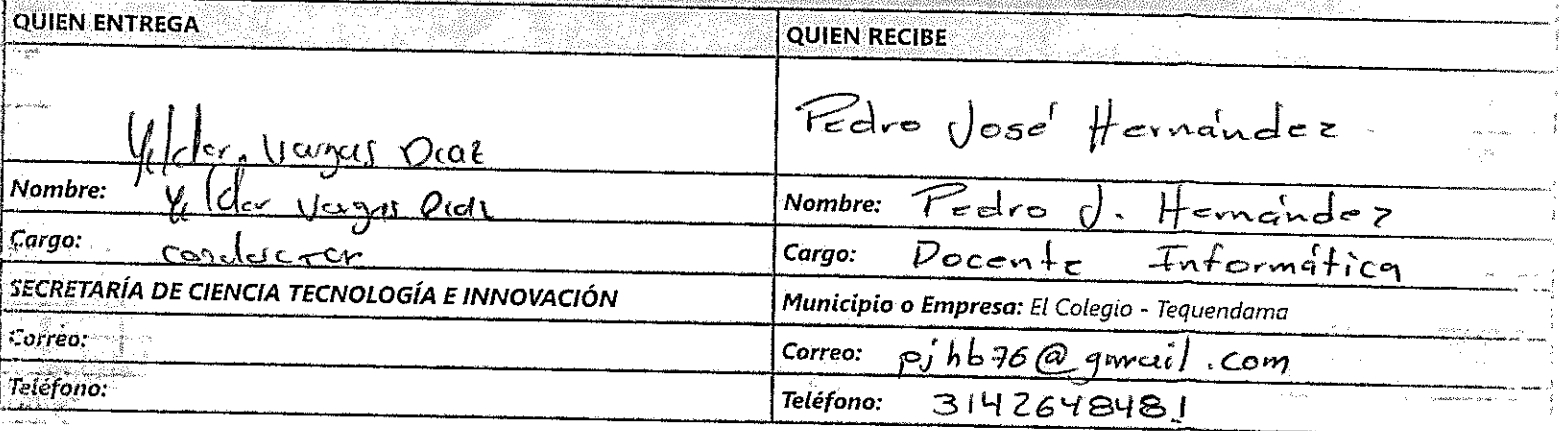 QUIEN ENTREGA
QUIEN RECIBE
Yelder Vargas Diaz
Pedro José Hernández
Nombre: Yelder Vargas Diaz
Nombre: Pedro J. Hernández
Cargo: conductor
Cargo: Docente Informática
SECRETARÍA DE CIENCIA TECNOLOGÍA E INNOVACIÓN
Municipio o Empresa: El Colegio - Tequendama
Correo:
Correo: pjhb76@gmail.com
Teléfono:
Teléfono: 3142648481